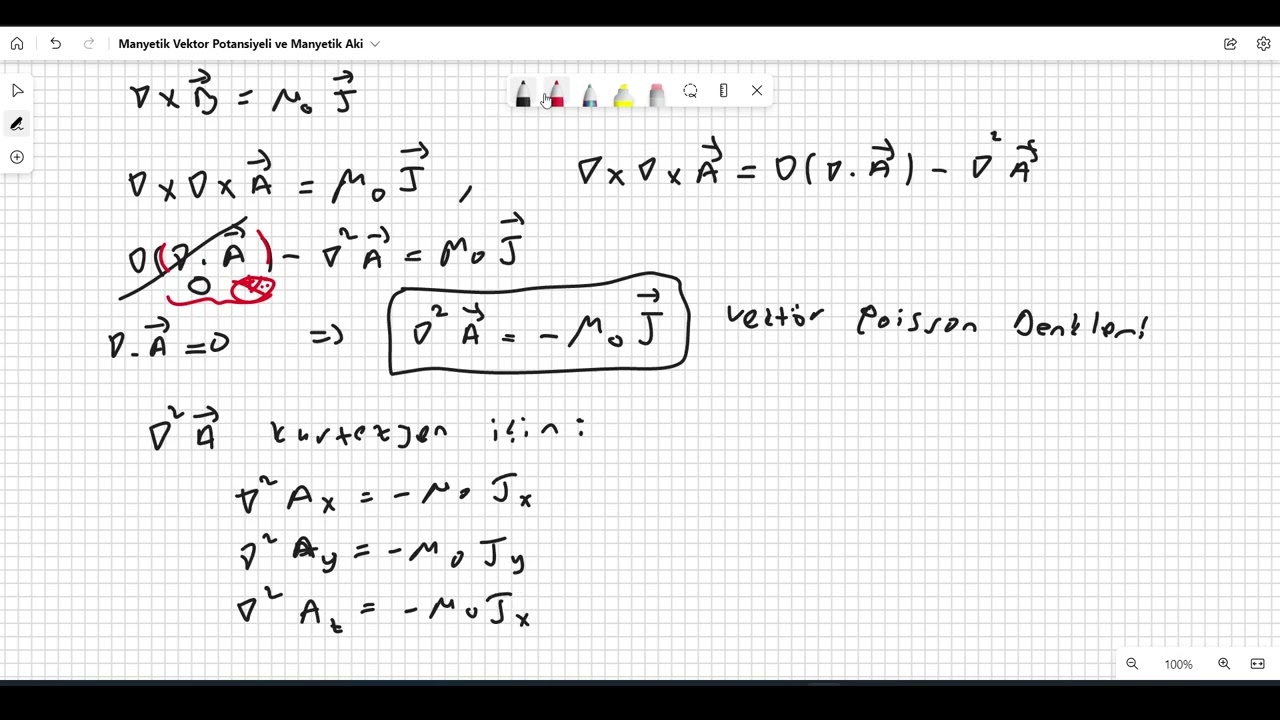 Manyetik Vektor Potansiyeli ve Manyetik Aki
∇ × B⃗ = μ₀ J⃗
∇ × ∇ × A⃗ = μ₀ J⃗ ,
∇ × ∇ × A⃗ = ∇(∇ . A⃗) - ∇² A⃗
∇(∇ . A⃗) - ∇² A⃗ = μ₀ J⃗
0
∇ . A⃗ = 0 ⇒ ∇² A⃗ = - μ₀ J⃗ Vektör Poisson Denklemi
∇² A⃗ kartezjen için :
∇² Aₓ = - μ₀ Jₓ
∇² A_y = - μ₀ J_y
∇² A_z = - μ₀ Jₓ
100%